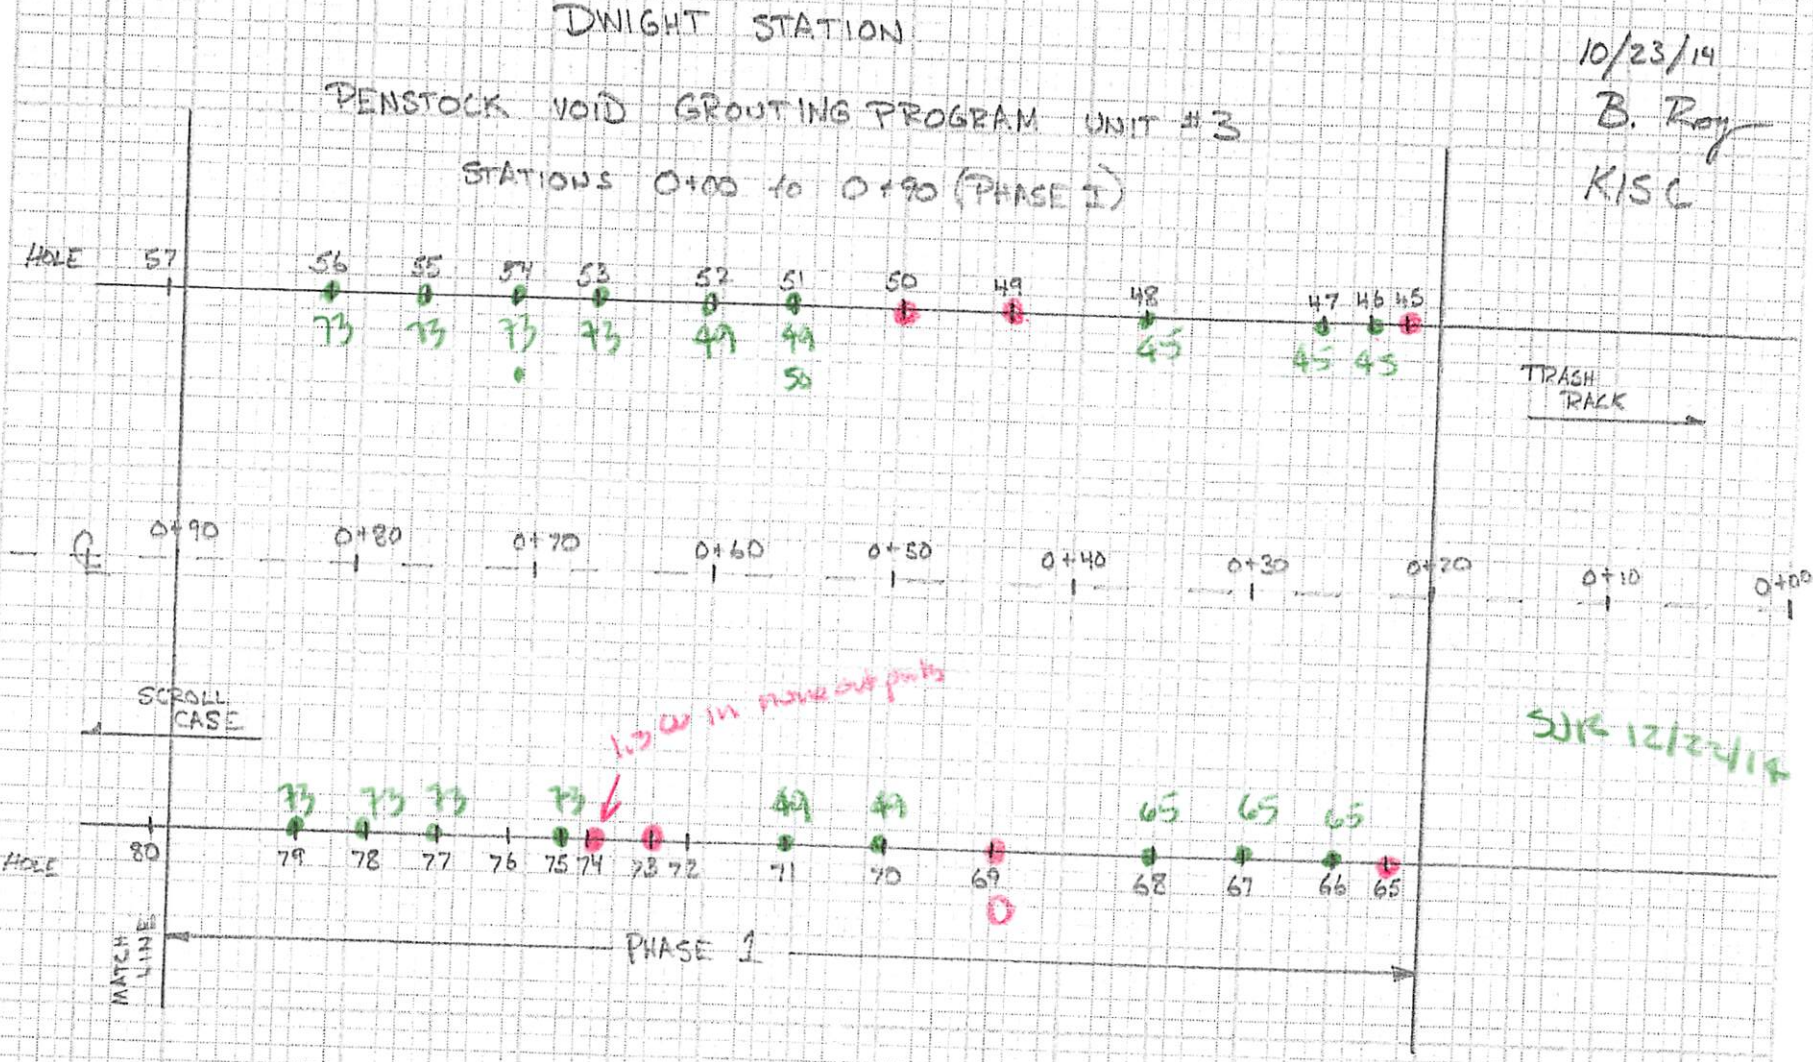 DWIGHT STATION
10/23/14
PENSTOCK VOID GROUTING PROGRAM UNIT #3
B. Roy
STATIONS 0+00 to 0+90 (PHASE I)
KISC
HOLE 57 56 55 54 53 52 51 50 49 48 47 46 45
73 73 73 73 49 49 45 45 45
50
TRASH
RACK
℄ 0+90 0+80 0+70 0+60 0+50 0+40 0+30 0+20 0+10 0+00
SCROLL
CASE
1.3 in move out
12/22/14
73 73 73 73 49 49 65 65 65
HOLE 80 79 78 77 76 75 74 73 72 71 70 69 68 67 66 65
0
MATCH
LINE
PHASE 1